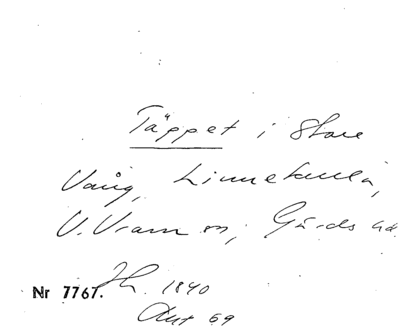 Täppet i Stora
Vång, Linnekulla,
V. Vram sn, Gärds hd.
Nr 7767. Jh. 1840
Akt 69